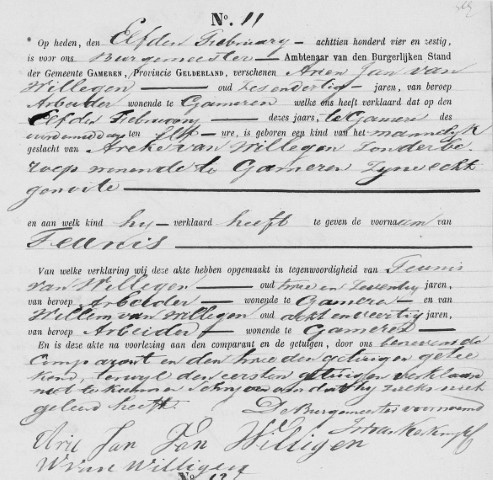 No. 11
Op heden, den Elfden Februarij achttien honderd vier en zestig,
is voor ons Burgemeester Ambtenaar van den Burgerlijken Stand
der Gemeente GAMEREN, Provincie GELDERLAND, verschenen Arien Jan van
Willegen oud zesendertig jaren, van beroep
Arbeider wonende te Gameren welke ons heeft verklaard dat op den
Elfden Februarij dezes jaars, te Gameren des
voordemiddags ten Elf ure, is geboren een kind van het mannelijk
geslacht van Areke van Willegen Zonder be
roep wonende te Gameren Zyne echt
genoote
en aan welk kind hy verklaard heeft te geven de voornaam van
Teunis
Van welke verklaring wij deze akte hebben opgemaakt in tegenwoordigheid van Teunis
van Willegen oud twee en zeventig jaren,
van beroep Arbeider wonende te Gameren en van
Willem van Willegen oud acht en veertig jaren,
van beroep Arbeider wonende te Gameren
En is deze akte na voorlezing aan den comparant en de getuigen, door ons benevens de
Comparant en den tweeden getuigen getee
kend, terwyl den eersten getuigen verklaarde
niet te kunnen Schryven aan dat hy zulks niet
geleerd heeft.
De Burgemeester voornoemd
Arie Jan Van Willigen
W van Willigen
No. 12